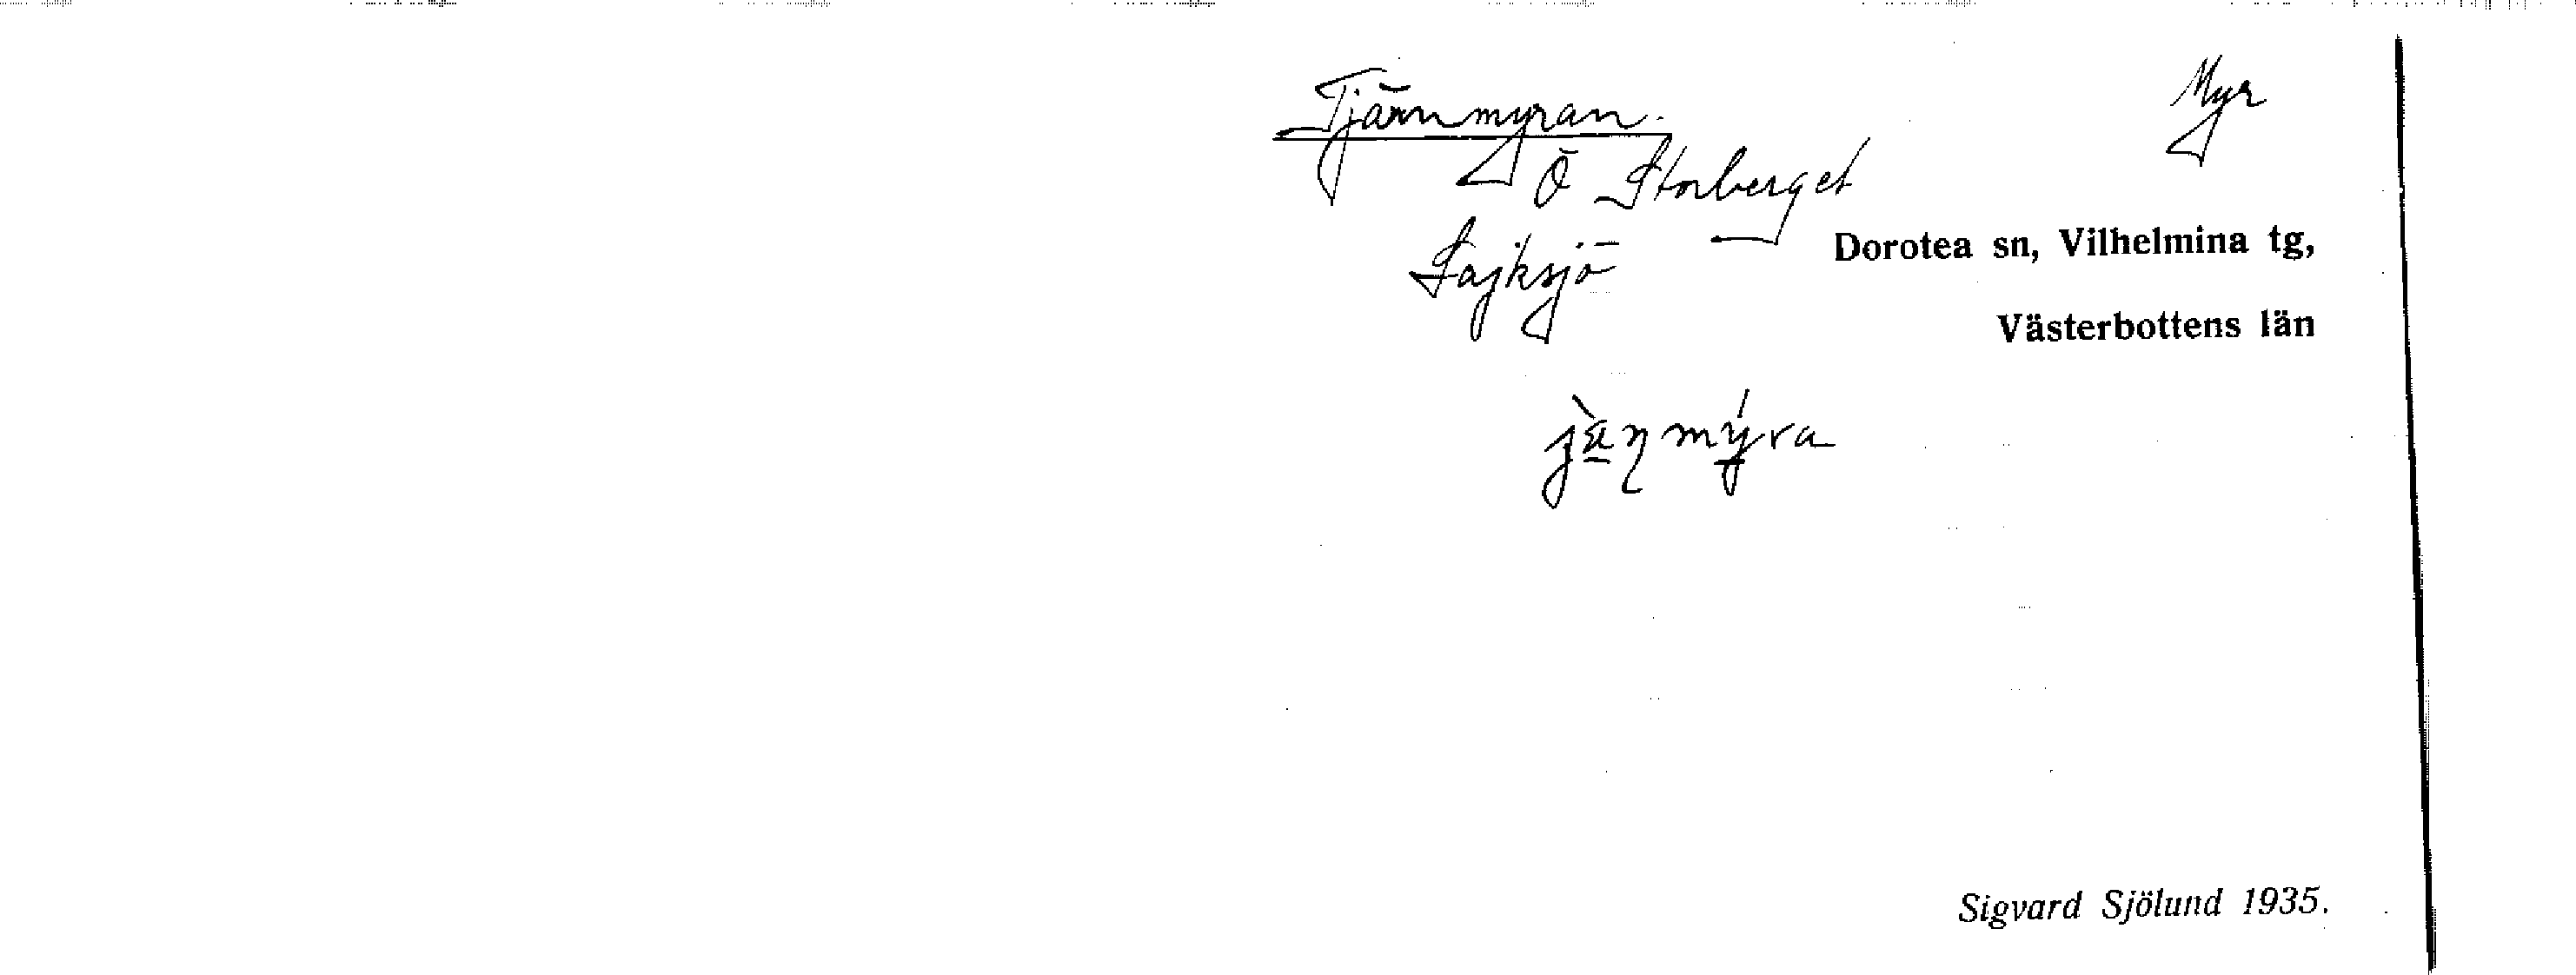 Tjärnmyran. Myr
Ö Storberget
Lajksjö Dorotea sn, Vilhelmina tg,
Västerbottens län
Sigvard Sjölund 1935.